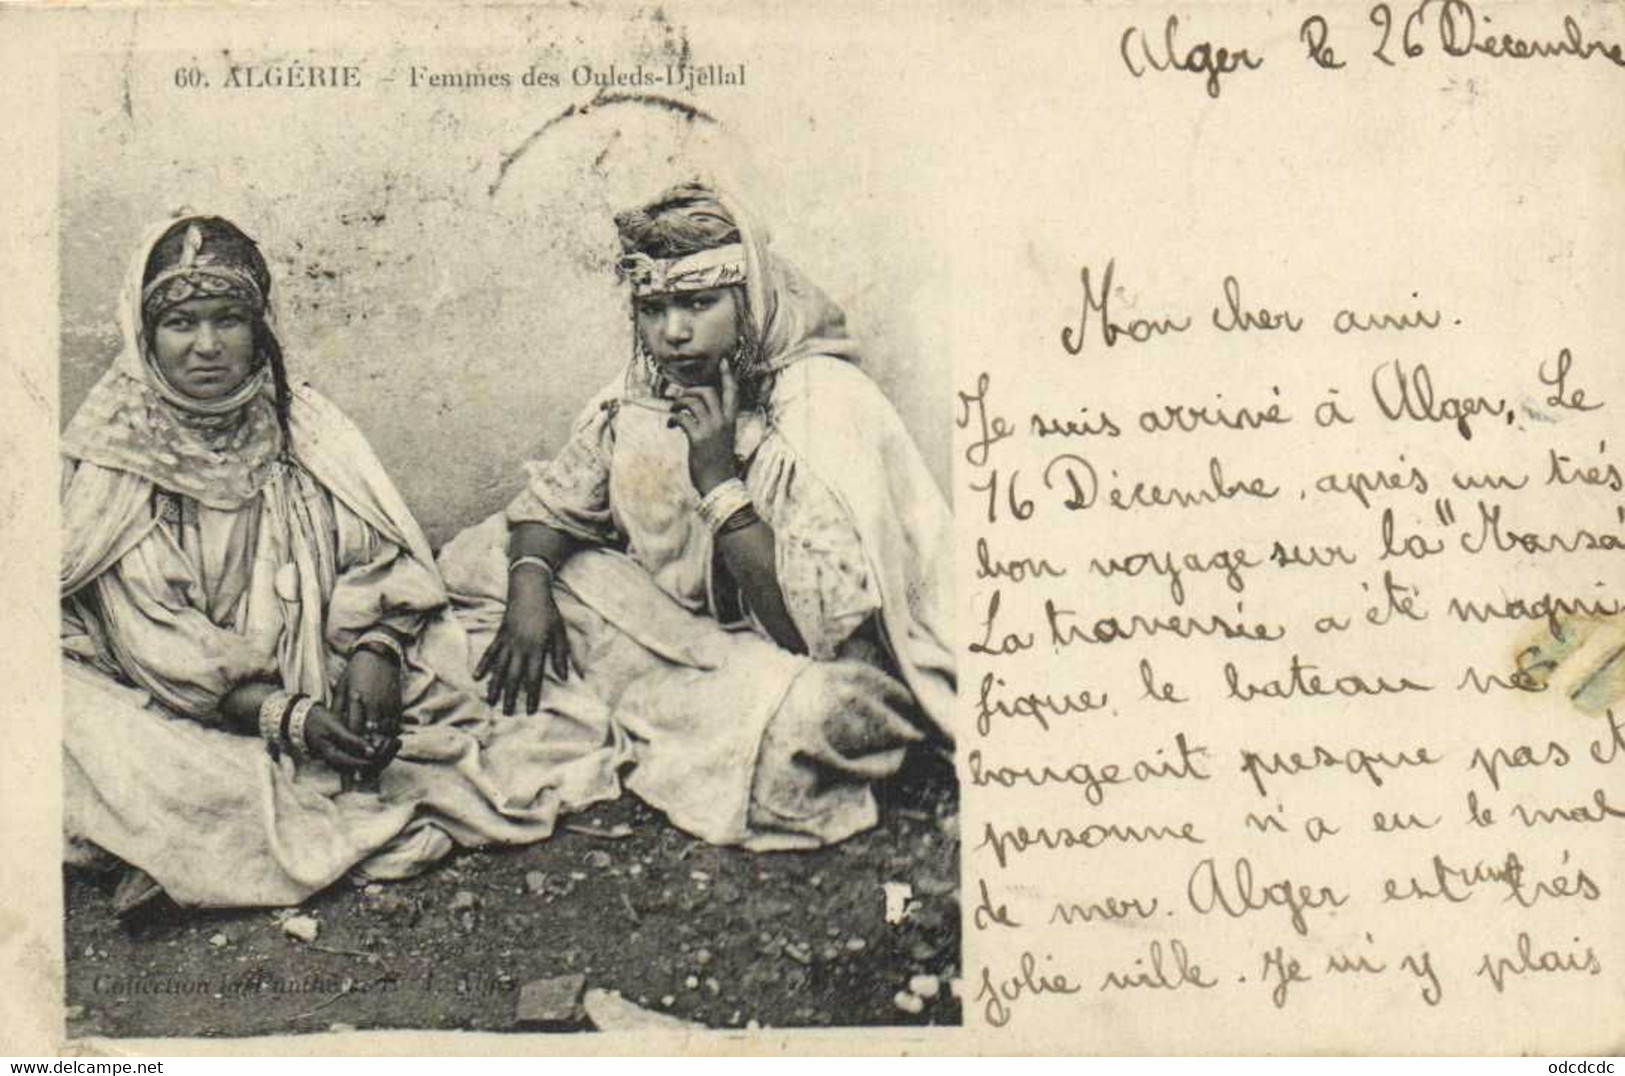 60. ALGÉRIE – Femmes des Ouleds-Djellal
Alger le 26 Décembre
Mon cher ami.
Je suis arrivé à Alger, Le
16 Décembre, aprés un trés
bon voyage sur la "Marsa
La traversée a été magni
fique, le bateau ne
bougeait presque pas et
personne n'a eu le mal
de mer. Alger est une trés
jolie ville. Je m'y plais
Collection la Panthère
odcdcdc